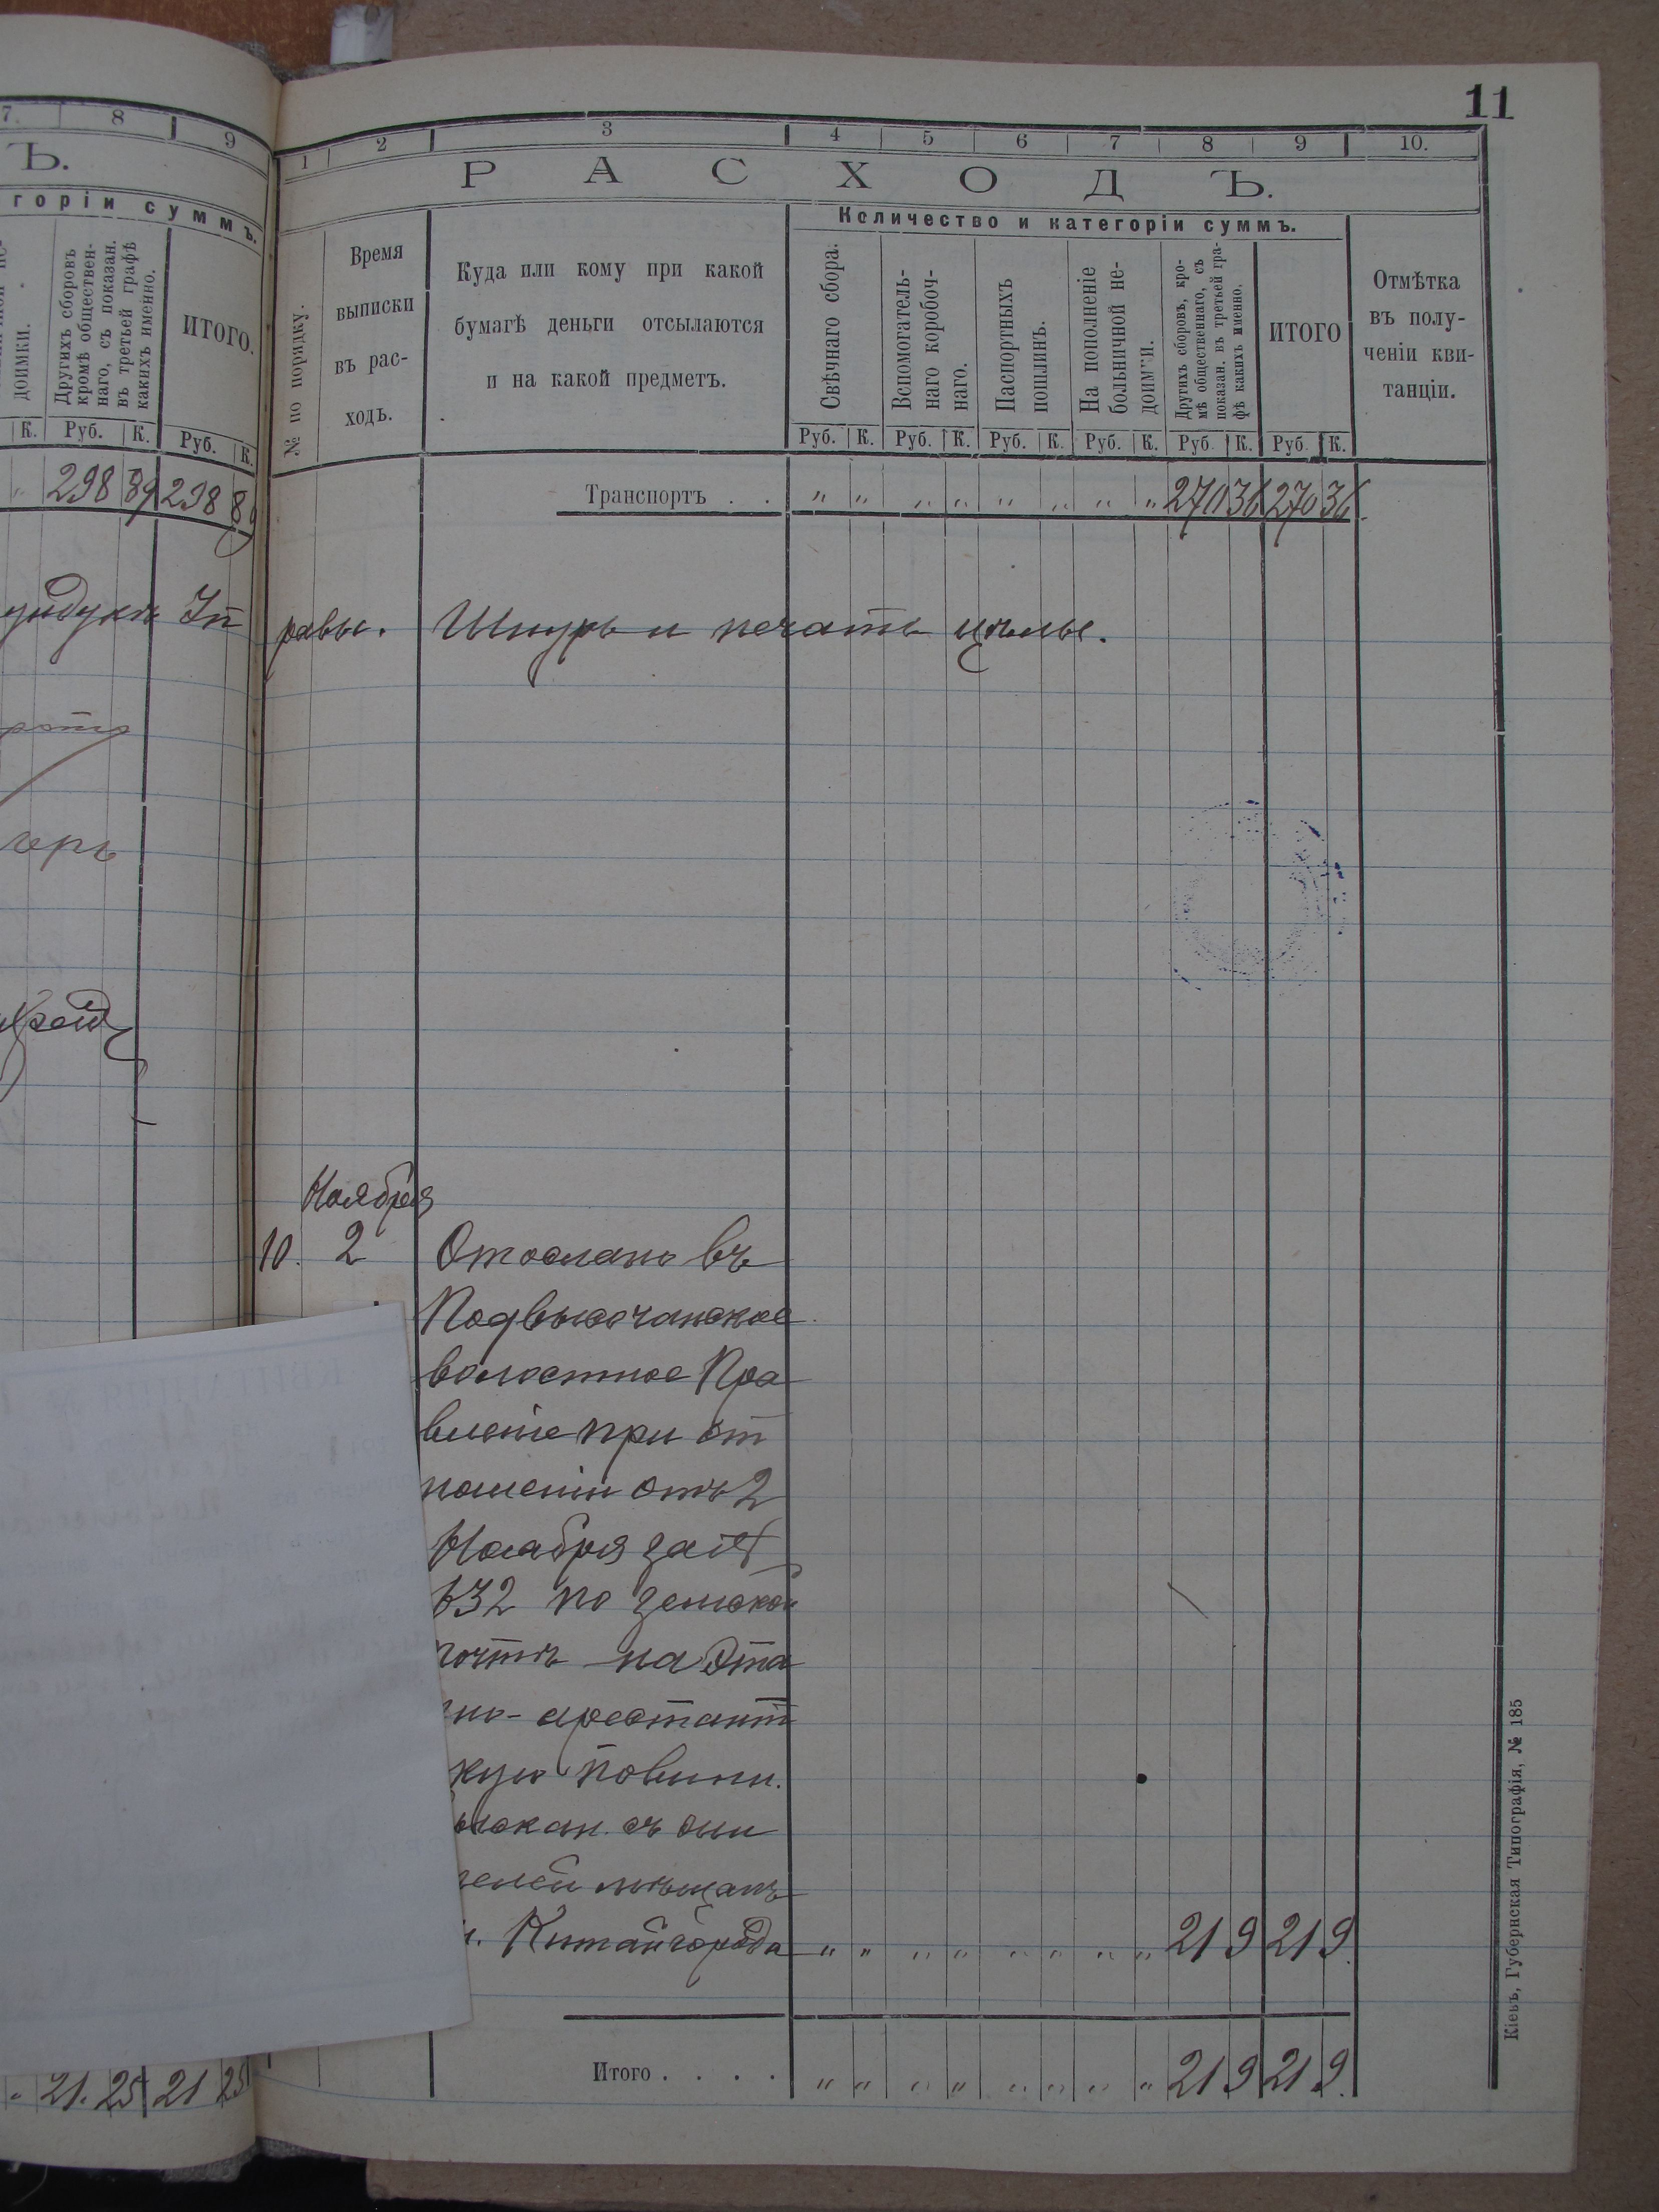 11
7. 8 9
Ъ.
горіи суммъ.
доимки.
Другихъ сборовъ
кромѣ обществен-
наго, съ показан.
въ третьей графѣ
какихъ именно.
ИТОГО.
К. Руб. К. Руб. К.
„ 298 89 298 89
рото
герь
„ 21. 25 21 25
1 2 3 4 5 6 7 8 9 10.
РАСХОДЪ.
Количество и категоріи суммъ.
№ по порядку.
Время
выписки
въ рас-
ходъ.
Куда или кому при какой
бумагѣ деньги отсылаются
и на какой предметъ.
Свѣчнаго сбора.
Вспомогатель-
наго коробоч-
наго.
Паспортныхъ
пошлинъ.
На пополненіе
больничной не-
доимки.
Другихъ сборовъ, кро-
мѣ общественнаго, съ
показан. въ третьей гра-
фѣ какихъ именно.
ИТОГО
Отмѣтка
въ полу-
ченіи кви-
танціи.
Руб. К. Руб. К. Руб. К. Руб. К. Руб. К. Руб. К.
Транспортъ . . „ „ „ „ „ „ „ „ 270 36 270 36
равы. Шнуръ и печать цѣлы.
Ноября
10. 2 Отослано въ
Подвысочанское
волостное Пра
вленіе при от
ношеніи отъ 2
Ноября за №
632 по земской
почтѣ на Эта
но-арестант
кую повинн.
ыскан. съ жи
телей мѣщанъ
м. Китайгорода „ „ „ „ „ „ „ „ 21 9 21 9.
Итого . . . . „ „ „ „ „ „ „ „ 21 9 21 9.
Кіевъ, Губернская Типографія, № 185